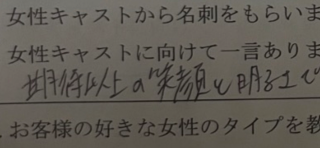 女性キャストから名刺をもらいま
女性キャストに向けて一言ありま
期待以上の笑顔と明るさで
.お客様の好きな女性のタイプを教